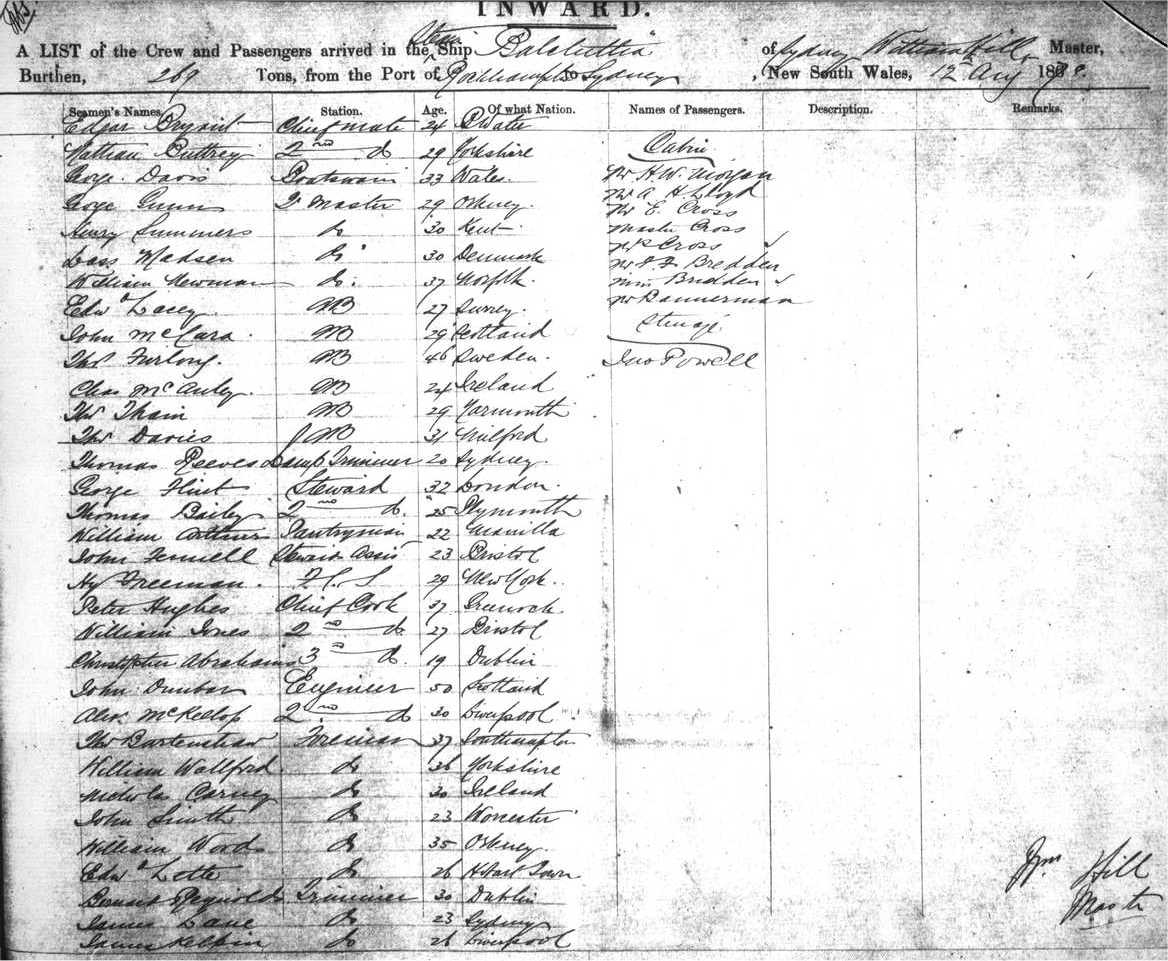 INWARD.
A LIST of the Crew and Passengers arrived in the Steam Ship Balclutha of Sydney William Hill, Master,
Burthen, 269 Tons, from the Port of Rockhampton to Sydney, New South Wales, 12th Aug 187
Seamen's Names. Station. Age. Of what Nation. Names of Passengers. Description. Remarks.
Edgar Bryant Chief mate 24
Cabin
2nd do 29 Yorkshire
Mr H. W. Morgan
George Davis Boatswain 33 Wales.
Mr A. H. Lloyd
George Gunn Qr Master 29 Orkney.
Mr E. Cross
Henry Summers do 30 Kent
Master Cross
Lass Madsen do 30 Denmark
Mrs Cross
William Newman do. 37 Norfolk.
Bredden
Miss Bredden
Edwd Lacey AB 27 Surrey.
Mr Bannerman
John McLara AB 29 Scotland
Steerage
Thos Furlong. AB 46 Sweden.
Jno Powell
Chas McAuley AB 24 Ireland
Thos Thain AB 29 Yarmouth
Thos Davies AB 31 Milford
Thomas Reeves Lamp Trimmer 20 Sydney.
George Flint Steward 32 London.
Thomas Bailey 2nd do. 25 Plymouth
William Arthur Pantryman 22 Manilla
John Fennell Steward Assist 23 Bristol
Hy Freeman. 29 New York.
Peter Hughes Chief Cook 37 Greenock.
William Jones 2nd do. 27 Bristol
Christopher Abrahams 3rd do. 19 Dublin
John Dunbar Engineer 50 Scotland
Alex. McKellop 2nd do 30 Liverpool.
Thos Bartenshaw Foreman 37 Southampton
William Wallford. do 36 Yorkshire
Nichola Carney do 30 Ireland
John Smith do 23 Worcester
William Woods do 35 Orkney.
Edwd Lette do 26 Hobart Town
Bernard Reynolds Trimmer 30 Dublin
James Lane do 23 Sydney
James do 26 Liverpool
Wm Hill
Master